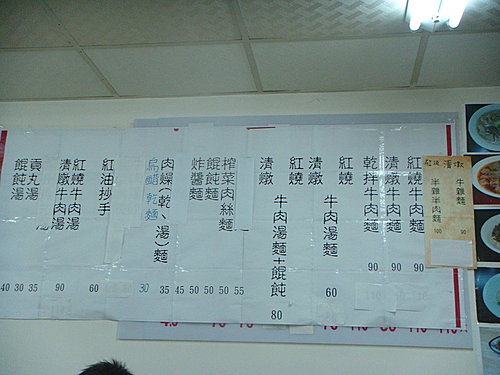 紅燒 清燉
牛雜麵 90
半雜半肉麵 100
紅燒牛肉麵 90
清燉牛肉麵 90
乾拌牛肉麵 90
紅燒
清燉
牛肉湯麵 60
紅燒
清燉
牛肉湯麵+餛飩 80
榨菜肉絲麵 55
餛飩麵 50
炸醬麵 50
50
45
肉燥(乾、湯)麵 35
烏醋乾麵 30
紅油抄手 60
紅燒牛肉湯
清燉牛肉湯 90
湯 35
貢丸湯 30
餛飩湯 40